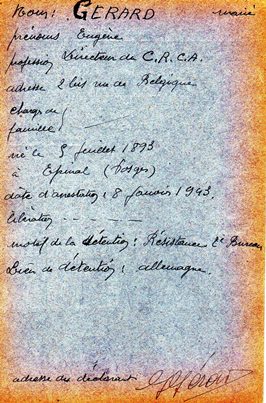 Nom: GERARD marié
prénoms Eugène
profession Directeur du C.R.C.A.
adresse 2 bis rue de Belgique
charge de
famille
né le 5 Juillet 1893
à Epinal (Vosges)
date d'arrestation, 8 Janvier 1943
libération - - - - -
motif de la détention: Résistance 2e Bureau
Lieu de détention: allemagne.
adresse du déclarant